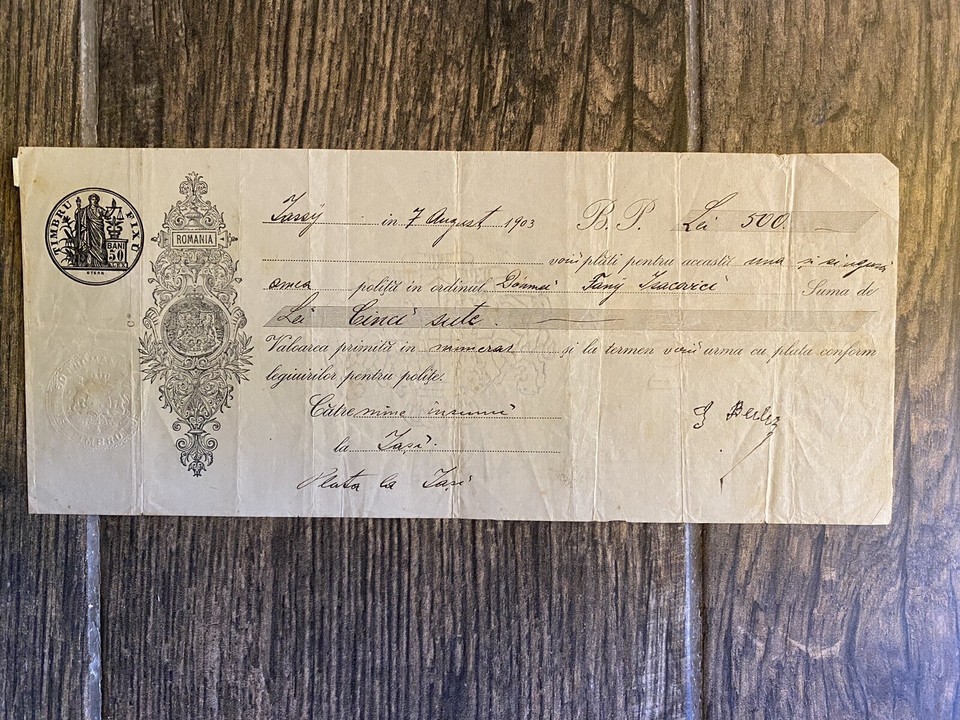 TIMBRU FIX
BANI
50
STERN
ROMANIA
Iassy in 7 August 1903 B. P. Lei 500.
voiŭ plăti pentru această una și singura
amea poliță in ordinul Domnei Fany Isacovici Suma de
Lei Cinci sute.
Valoarea primită in numerar și la termen voiŭ urma cu plata conform
legiuirilor pentru polițe.
Către mine însumi
la Iași.
Plata la Iași